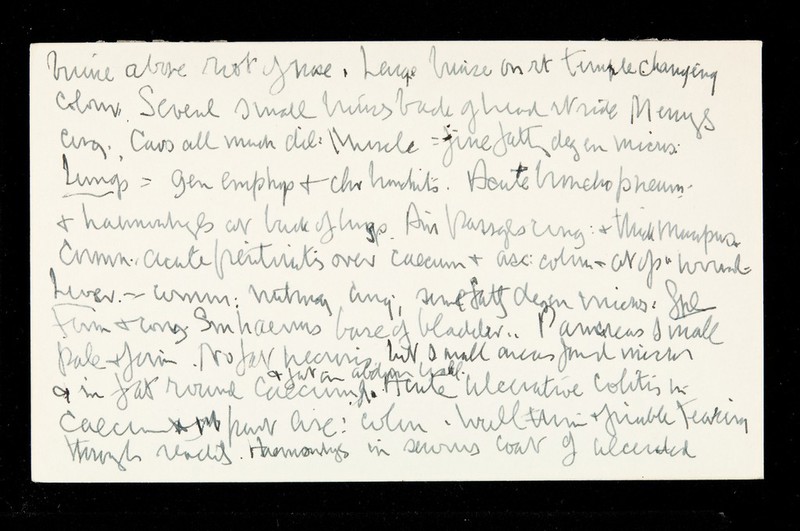 bruise above root of nose. Large bruise on rt temple changing
colour. Several small bruises back of head rt side Meninges
cong. Cavs all much dil: Muscle = fine fatty degen micros.
Lungs = gen emphys + chr bronchitis. Acute bronchopneum.
+ haemorrhges at back of lungs. Air passages cong: + thick mucopus.
Comm. acute peritonitis over caecum + asc: colon + at op. wound =
Liver. = comm: nutmeg cong; some fatty degen micros. Spl
Firm + cong. Sm haems base of bladder.. Pancreas small
pale + firm. No fat necrosis but small areas found micros
+ fat on abdom wall.
in fat round caecum. Acute ulcerative colitis in
caecum + part asc: colon. Wall thin + friable tearing
through readily. Haemorrhgs in serous coat of ulcerated